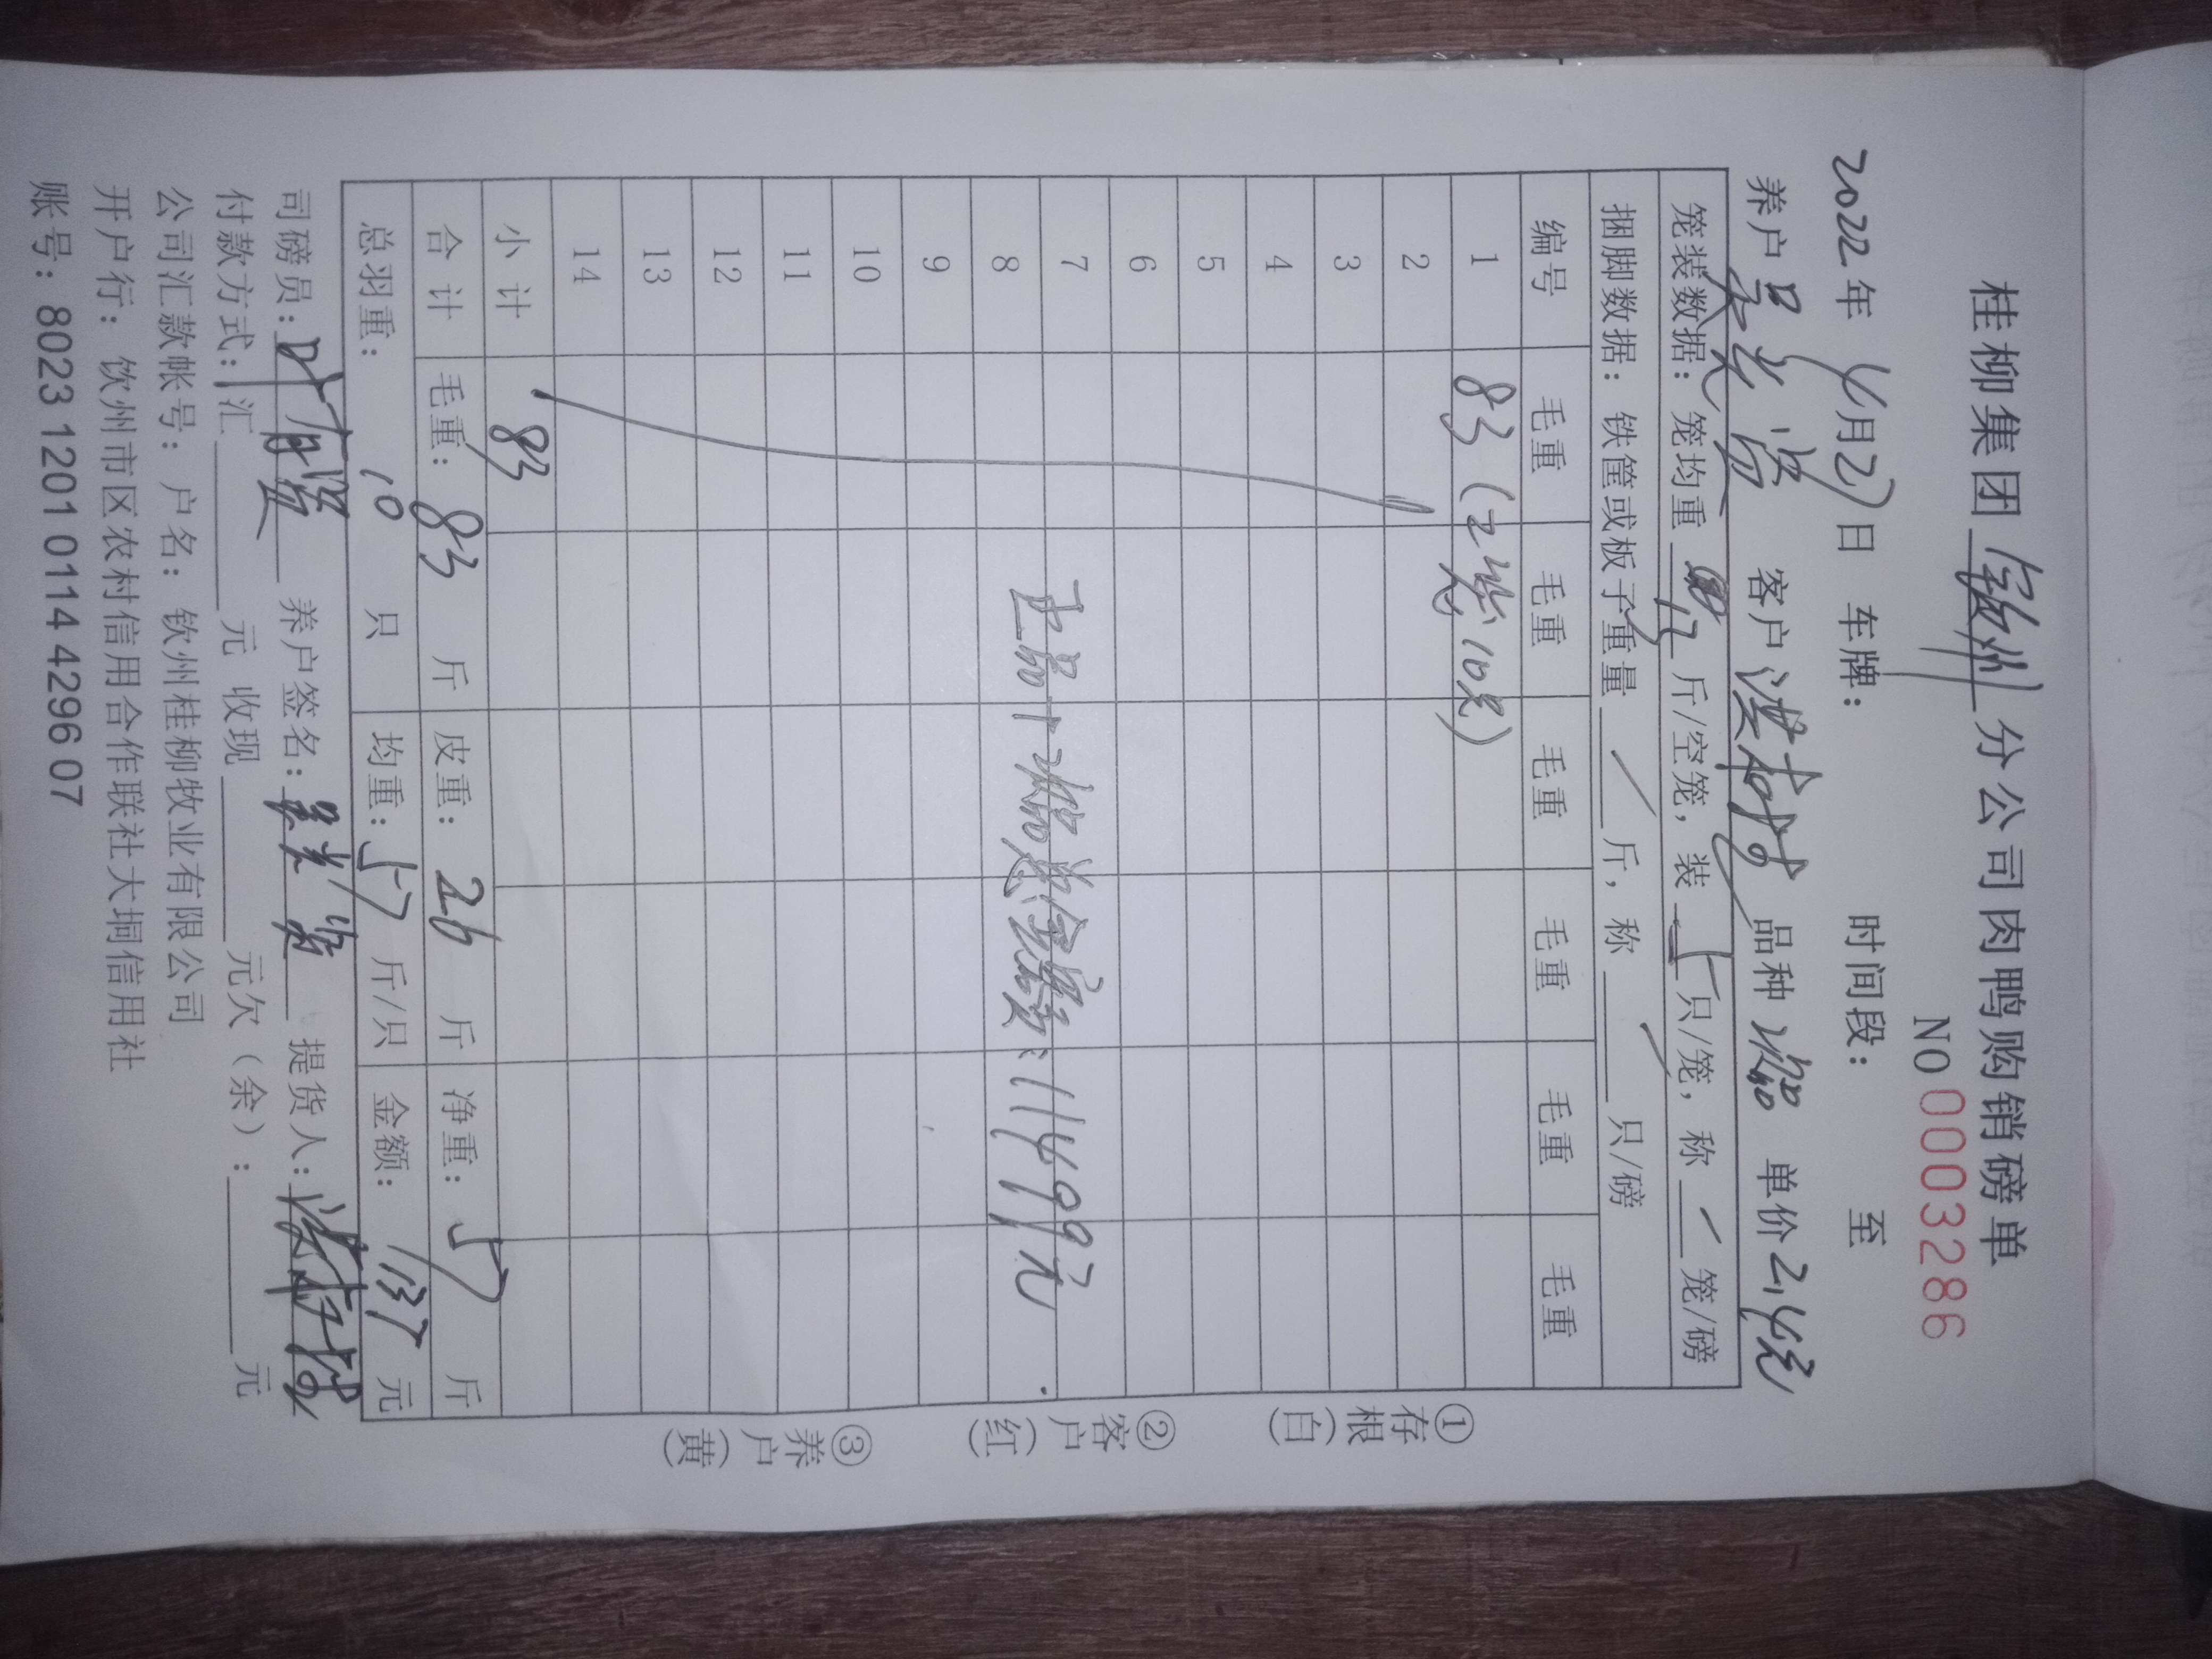 桂柳集团 钦州 分公司肉鸭购销磅单
NO 0003286
2022年 4月27日 车牌： 时间段： 至
养户 客户 品种 次品 单价 2.4元
笼装数据：笼均重 13 斤/空笼，装 5 只/笼，称 / 笼/磅
捆脚数据：铁筐或板子重量 / 斤，称 / 只/磅
编号 毛重 毛重 毛重 毛重 毛重 毛重
1 83（2笼10只）
2
3
4
5
6
7
8 正品+次品总金额：11499元
9
10
11
12
13
14
小计 83
合计 毛重：83 斤 皮重：26 斤 净重：57 斤
总羽重：10 只 均重：5.7 斤/只 金额：137 元
司磅员： 养户签名： 提货人：
付款方式：汇 元 收现 元欠（余）： 元
公司汇款帐号：户名：钦州桂柳牧业有限公司
开户行：钦州市区农村信用合作联社大垌信用社
账号：8023 1201 0114 4296 07
①存根（白）
②客户（红）
③养户（黄）